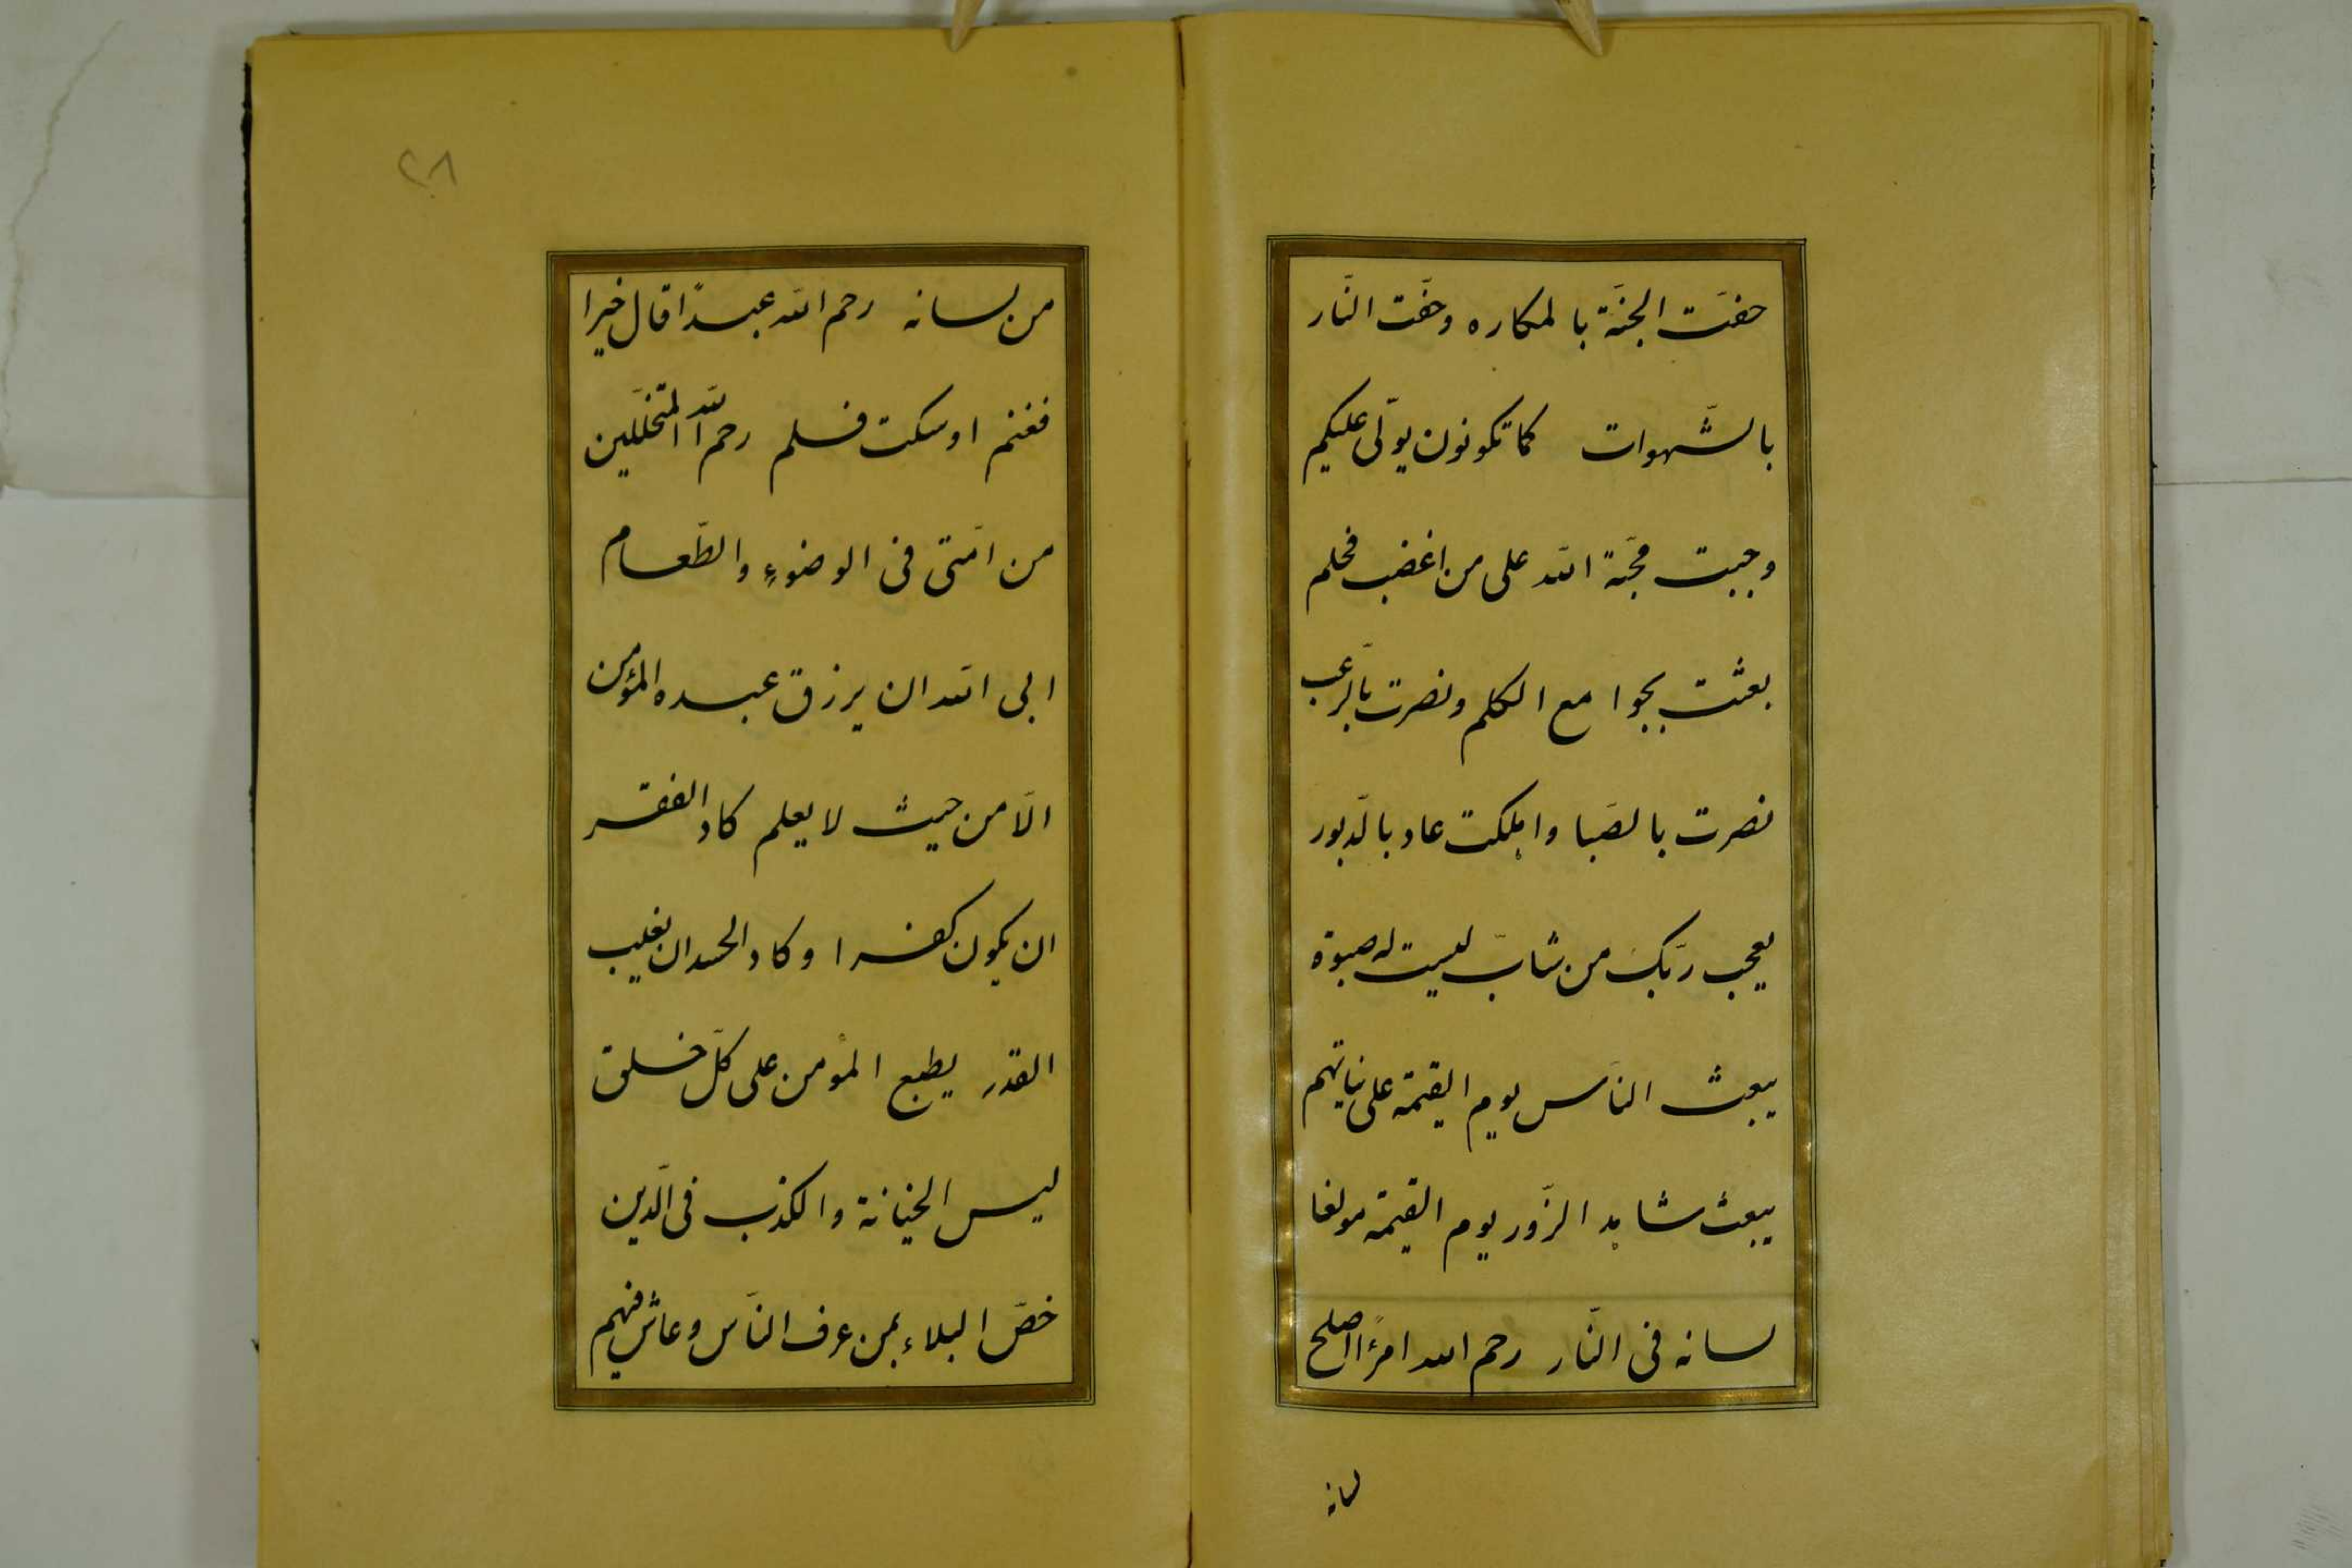 حفّت الجنّة بالمكاره وحفّت النّار
بالشّهوات كما تكونون يولّى عليكم
وجبت محبّة الله على من اغضب فحلم
بعثت بجوامع الكلم ونصرت بالرّعب
نصرت بالصّبا واهلكت عاد بالدّبور
يعجب ربّك من شابّ ليست له صبوة
يبعث النّاس يوم القيمة على نيّاتهم
يبعث شاهد الزّور يوم القيمة مولغا
لسانه فى النّار رحم الله امرءًا اصلح
لسانه
٢٨
من لسانه رحم الله عبدًا قال خيرا
فغنم او سكت فسلم رحم الله المتخلّلين
من امّتى فى الوضوءِ والطّعام
ابى الله ان يرزق عبده المؤمن
الّا من حيث لا يعلم كاد الفقر
ان يكون كفرا وكاد الحسد ان يغلب
القدر يطبع المؤمن على كلّ خلق
ليس الخيانة والكذب فى الدّين
خصّ البلاء بمن عرف النّاس وعاش فيهم